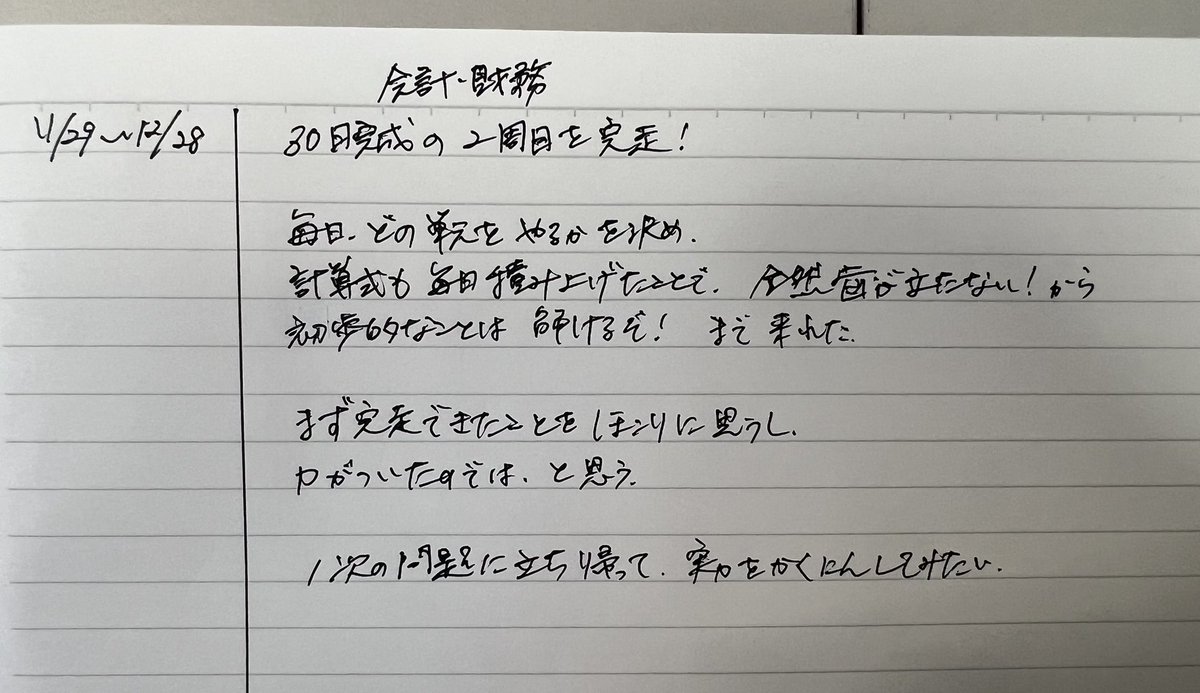 会計・財務
11/29〜12/28
30日完成の2周目を完走!
毎日、どの単元をやるかを決め、
計算式も毎日積み上げたことで、全然歯が立たない!から
初歩的なことは解けるぞ!まで来れた。
まず完走できたことをほこりに思うし、
力がついたのでは、と思う。
1次の問題に立ち帰って、実力をかくにんしてみたい。